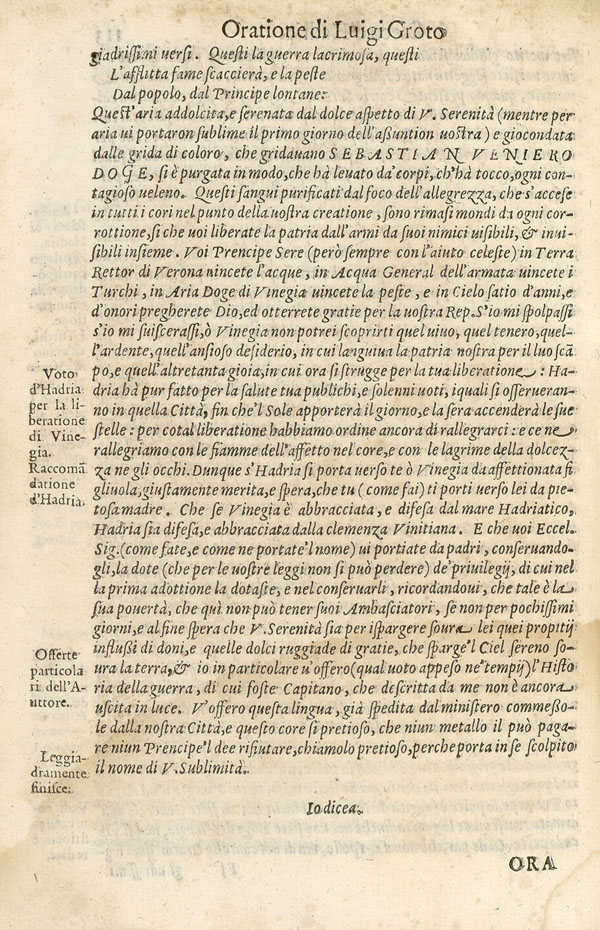 Oratione di Luigi Groto
giadrissimi versi. Questi la guerra lacrimosa, questi
L'afflitta fame scaccierà, e la peste
Dal popolo, dal Principe lontane:
Quest'aria addolcita, e serenata dal dolce aspetto di V. Serenità (mentre per
aria ui portaron sublime il primo giorno dell'aßuntion uostra) e giocondata
dalle grida di coloro, che gridauano SEBASTIAN VENIERO
DOGE, si è purgata in modo, che hà leuato da'corpi, ch'hà tocco, ogni con-
tagioso ueleno. Questi sangui purificati dal foco dell'allegrezza, che s'accese
in tutti i cori nel punto della uostra creatione, sono rimasi mondi da ogni cor-
rottione, si che uoi liberate la patria dall'armi da suoi nimici uisibili, & inui-
sibili insieme. Voi Prencipe Sere (però sempre con l'aiuto celeste) in Terra
Rettor di Verona uincete l'acque, in Acqua General dell'armata uincete i
Turchi, in Aria Doge di Vinegia uincete la peste, e in Cielo satio d'anni, e
d'onori pregherete Dio, ed otterrete gratie per la uostra Rep. S'io mi spolpassi
s'io mi suiscerassi, ò Vinegia non potrei scoprirti quel uiuo, quel tenero, quel-
l'ardente, quell'ansioso desiderio, in cui languiua la patria nostra per il luo scã
po, e quell'altretanta gioia, in cui ora si strugge per la tua liberatione: Ha-
dria hà pur fatto per la salute tua publichi, e solenni uoti, iquali si osserueran-
no in quella Città, fin che'l Sole apporterà il giorno, e la sera accenderà le sue
stelle: per cotal liberatione habbiamo ordine ancora di rallegrarci: e ce ne
rallegriamo con le fiamme dell'affetto nel core, e con le lagrime della dolcez-
za ne gli occhi. Dunque s'Hadria si porta uerso te ò Vinegia da affettionata fi
gliuola, giustamente merita, e spera, che tu (come fai) ti porti uerso lei da pie-
tosa madre. Che se Vinegia è abbracciata, e difesa dal mare Hadriatico,
Hadria sia difesa, e abbracciata dalla clemenza Vinitiana. E che uoi Eccel.
Sig. (come fate, e come ne portate'l nome) ui portiate da padri, conseruando-
gli, la dote (che per le uostre leggi non si può perdere) de'priuilegij, di cui nel
la prima adottione la dotaste, e nel conseruarli, ricordandoui, che tale è la
sua pouertà, che quì non può tener suoi Ambasciatori, se non per pochissimi
giorni, e al fine spera che V. Serenità sia per ispargere soura lei quei propitij
influßi di doni, e quelle dolci ruggiade di gratie, che sparge'l Ciel sereno so-
ura la terra, & io in particolare u'offero (qual uoto appeso ne'tempij) l'Histo
ria della guerra, di cui foste Capitano, che descritta da me non è ancora
uscita in luce. V'offero questa lingua, già spedita dal ministero commeßo-
le dalla nostra Città, e questo core si pretioso, che niun metallo il può paga-
re niun Prencipe'l dee rifiutare, chiamolo pretioso, perche porta in se scolpito
il nome di V. Sublimità.
Io dicea.
Voto
d'Hadria
per la li-
beratione
di Vine-
gia.
Raccomã
datione
d'Hadria.
Offerte
particola
ri dell'A-
uttore.
Leggia-
dramente
finisce.
ORA